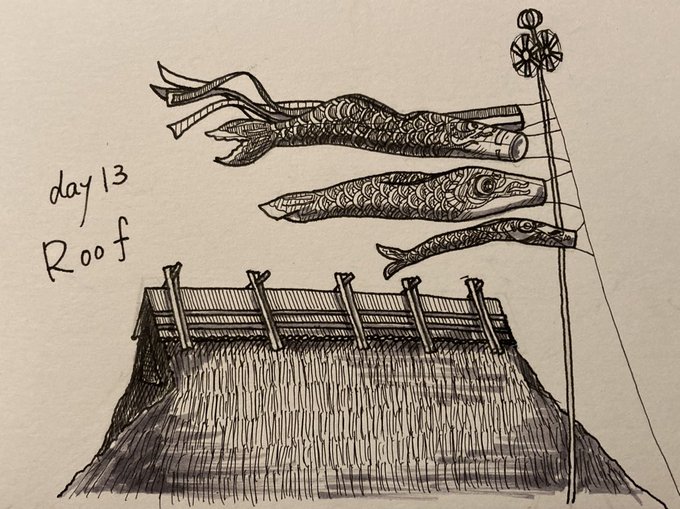 day 13
Roof